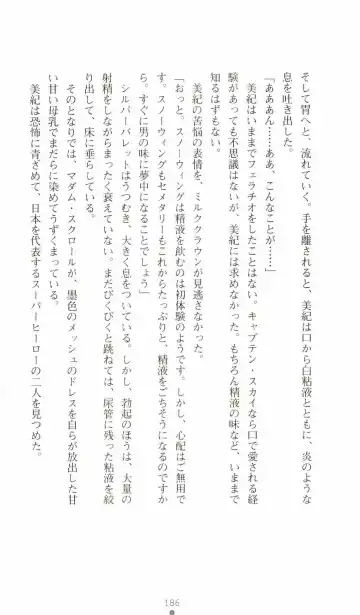 そして胃へと、流れていく。手を離されると、美紀は口から白粘液とともに、炎のような
息を吐き出した。
「あああん……ああ、こんなことが……」
美紀はいままでフェラチオをしたことはない。キャプテン・スカイなら口で愛される経
験があっても不思議はないが、美紀には求めなかった。もちろん精液の味など、いままで
知るはずもない。
美紀の苦悩の表情を、ミルククラウンが見逃さなかった。
「おっと。スノーウィングは精液を飲むのは初体験のようです。しかし、心配はご無用で
す。スノーウィングもセメタリーもこれからたっぷりと、精液をごちそうになるのですか
ら。すぐに男の味に夢中になることでしょう」
シルバーバレットはうつむき、大きく息をついている。しかし、勃起のほうは、大量の
射精をしながらもまったく衰えていない。まだびくびくと跳ねては、尿管に残った粘液を絞
り出して、床に垂らしている。
そのとなりでは、マダム・スクロールが、墨色のメッシュのドレスを自らが放出した甘
い甘い母乳でまだらに染めてうずくまっている。
美紀は恐怖に青ざめて、日本を代表するスーパーヒーローの二人を見つめた。
186